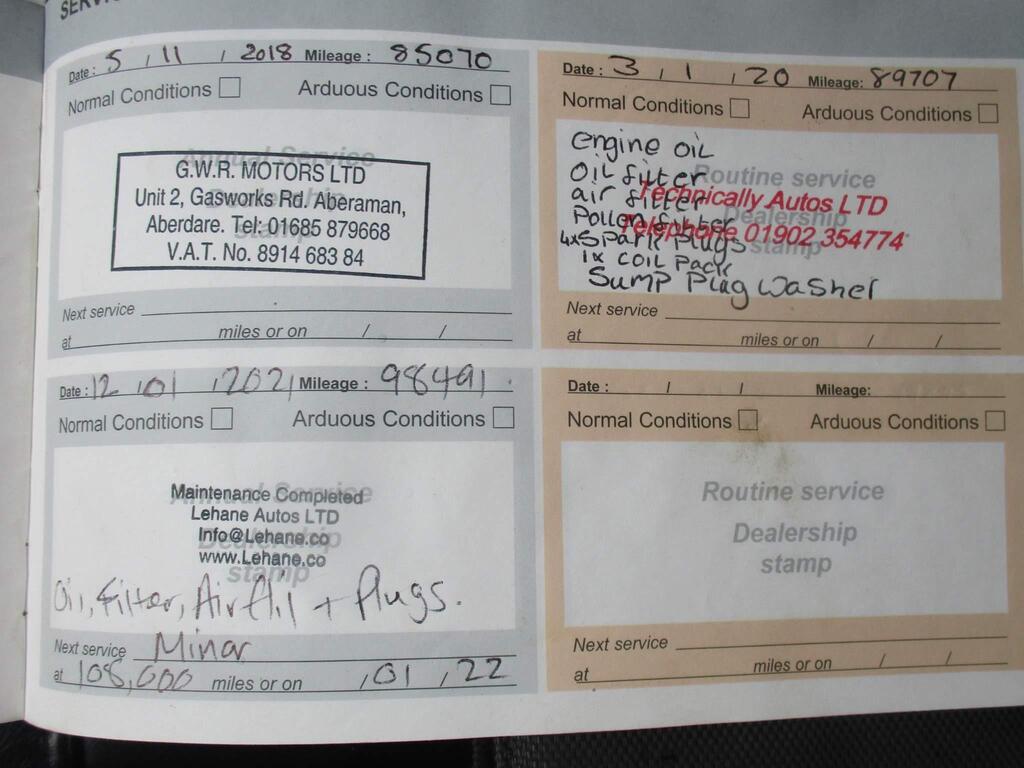 Date: 5 / 11 / 2018 Mileage: 85070
Normal Conditions Arduous Conditions
Annual Service
Dealership
stamp
G.W.R. MOTORS LTD
Unit 2, Gasworks Rd. Aberaman,
Aberdare. Tel: 01685 879668
V.A.T. No. 8914 683 84
Next service
at miles or on / /
Date: 3 / 1 / 20 Mileage: 89707
Normal Conditions Arduous Conditions
Routine service
Dealership
stamp
Technically Autos LTD
Telephone 01902 354774
engine oil
oil filter
air filter
Pollen filter
4x Spark Plugs
1x coil Pack
Sump Plug Washer
Next service
at miles or on / /
Date: 12 / 01 / 2021 Mileage: 98491
Normal Conditions Arduous Conditions
Annual Service
Dealership
stamp
Maintenance Completed
Lehane Autos LTD
Info@Lehane.co
www.Lehane.co
Oil, Filter, Air fil + Plugs.
Next service Minor
at 108,000 miles or on / 01 / 22
Date: / / Mileage:
Normal Conditions Arduous Conditions
Routine service
Dealership
stamp
Next service
at miles or on / /